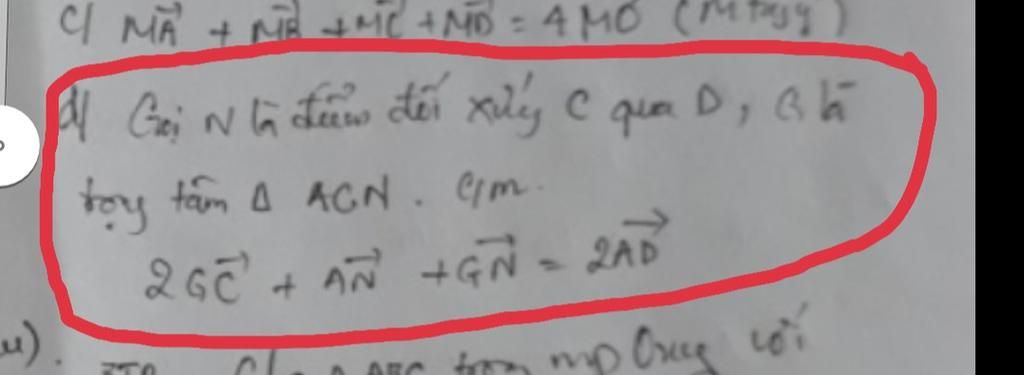 c/ MA + MB + MC + MD = 4MO (M tùy ý)
d/ Gọi N là điểm đối xứng C qua D, G là
trọng tâm Δ ACN. C/m.
2GC + AN + GN = 2AD
ABC trong mp Oxy với